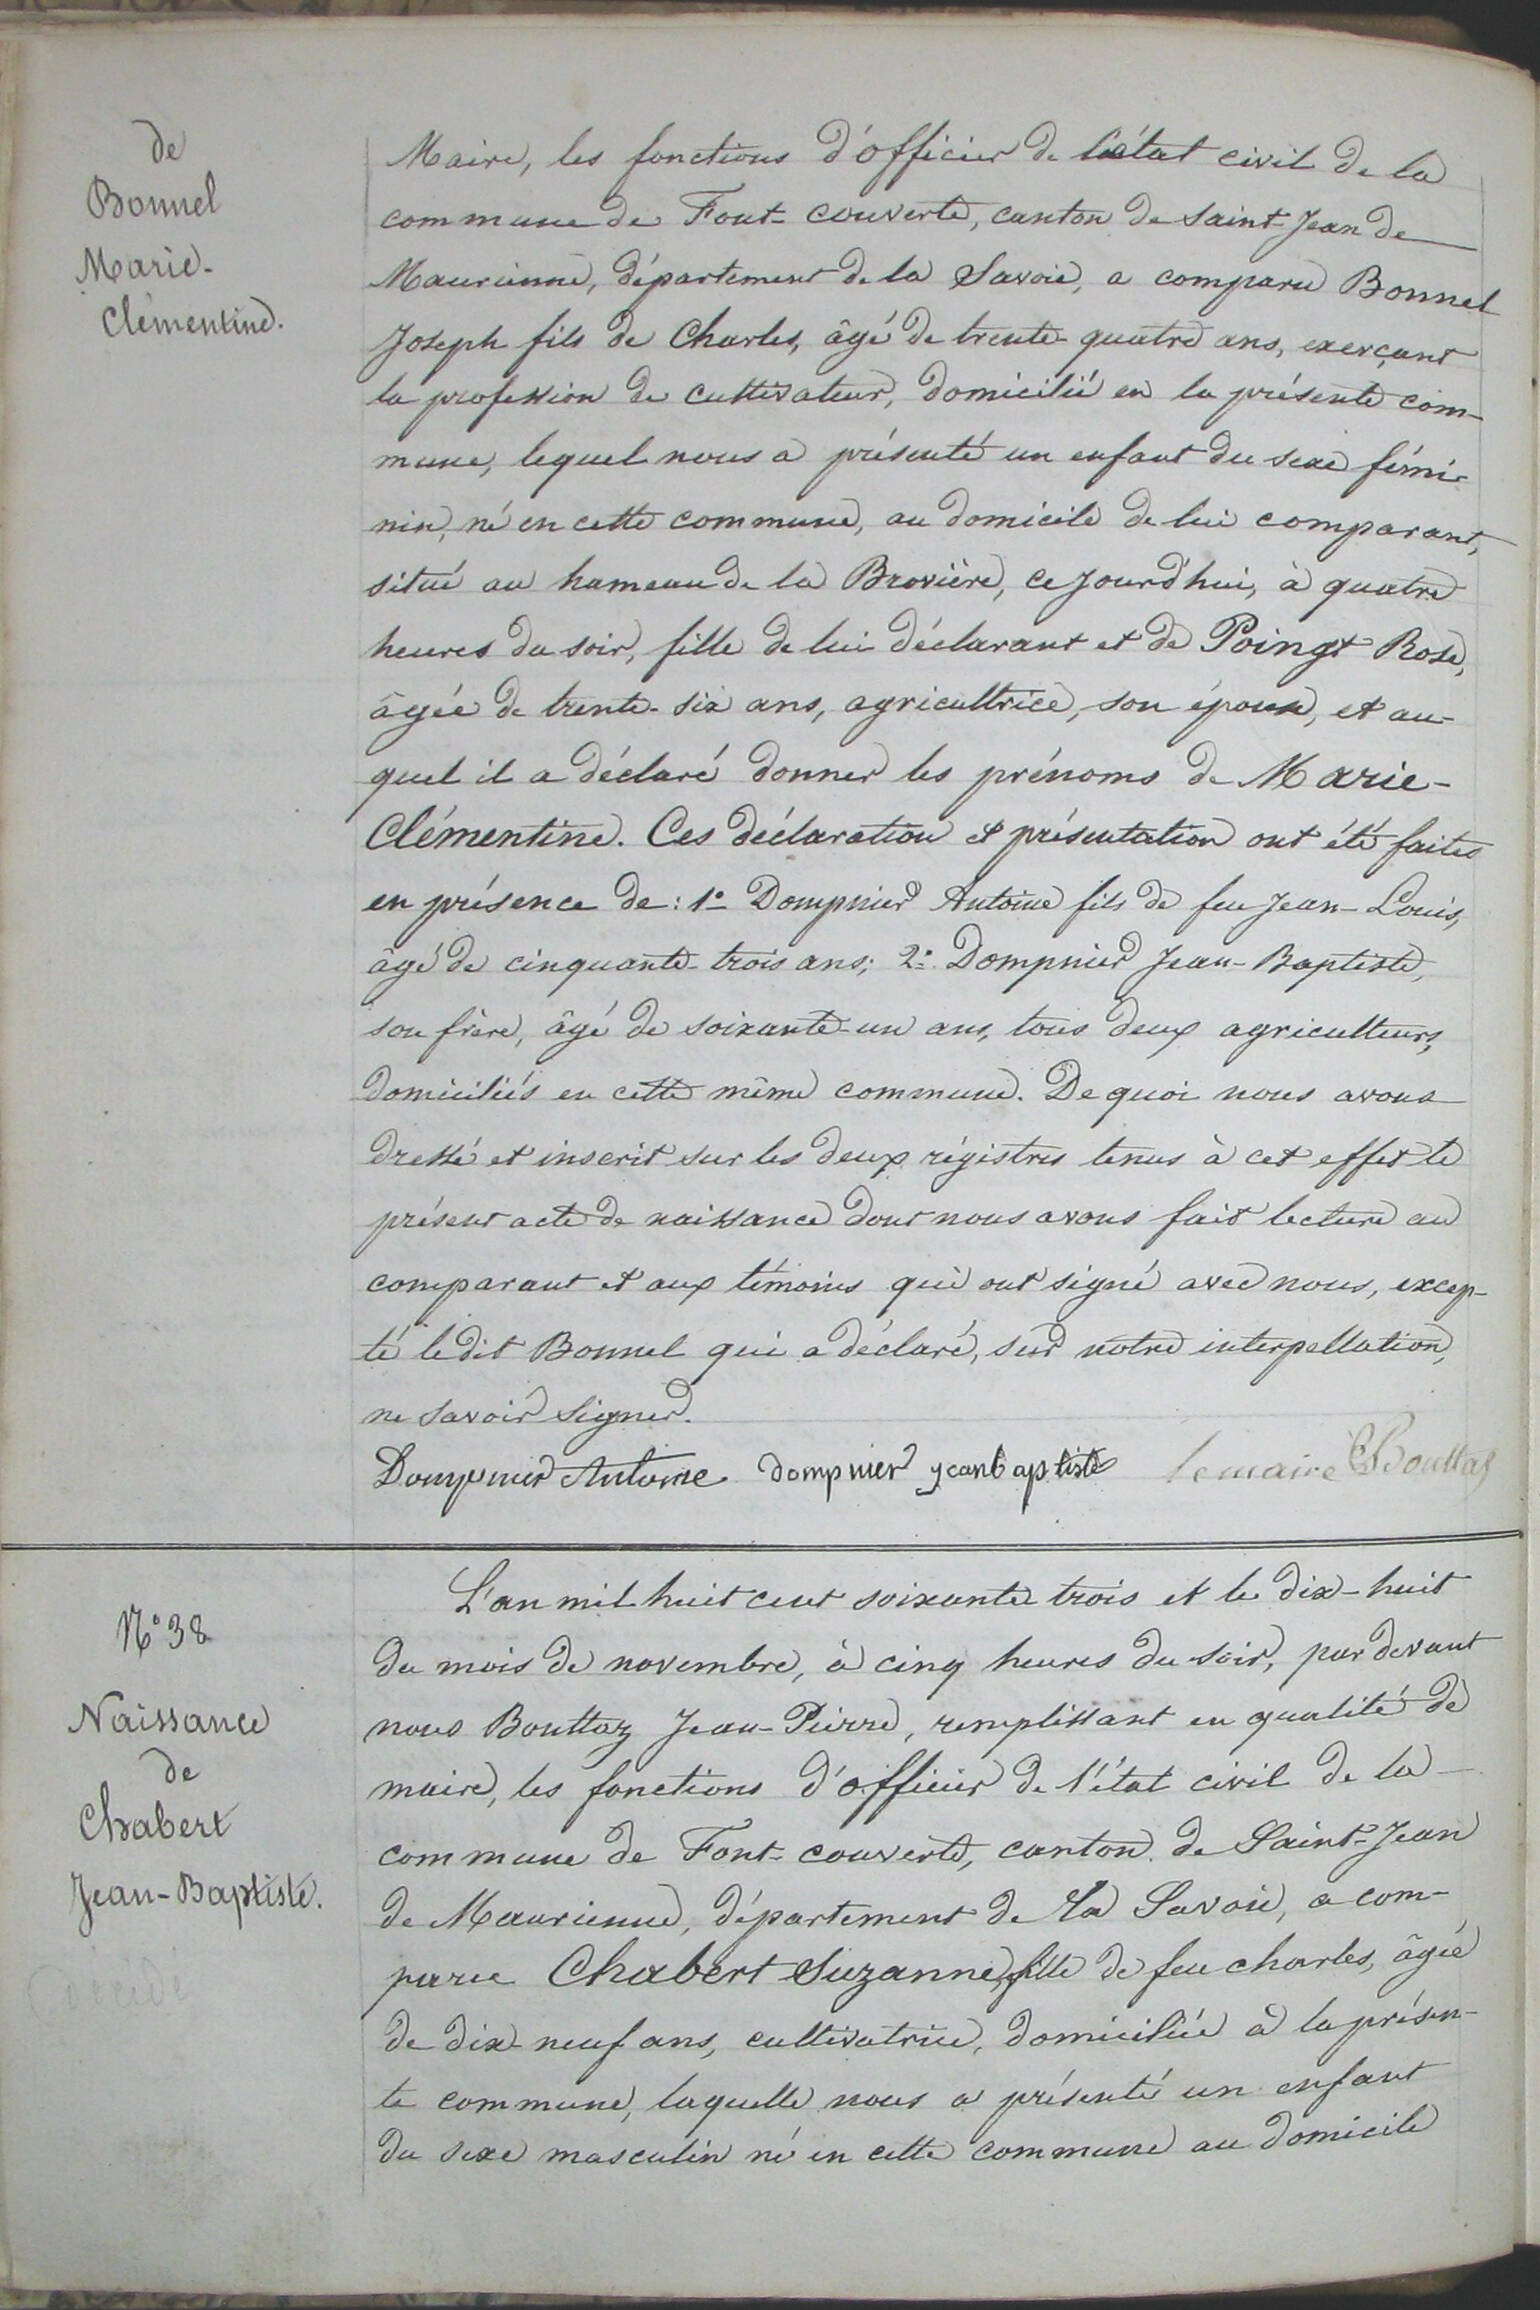 de
Bonnel
Marie-
Clémentine.
Maire, les fonctions d'officier de l'état civil de la
commune de Font-couverte, canton de Saint-Jean de
Maurienne, département de la Savoie, a comparu Bonnel
Joseph fils de Charles, âgé de trente-quatre ans, exerçant
la profession de cultivateur, domicilié en la présente com-
mune, lequel nous a présenté un enfant du sexe fémi-
nin, né en cette commune, au domicile de lui comparant,
situé au hameau de la Brovière, ce jourd'hui, à quatre
heures du soir, fille de lui déclarant et de Poingt Rose,
âgée de trente-six ans, agricultrice, son épouse, et au-
quel il a déclaré donner les prénoms de Marie-
Clémentine. Ces déclaration et présentation ont été faites
en présence de: 1° Dompnier Antoine fils de feu Jean-Louis,
âgé de cinquante-trois ans; 2° Dompnier Jean-Baptiste,
son frère, âgé de soixante-un ans, tous deux agriculteurs,
domiciliés en cette même commune. De quoi nous avons
dressé et inscrit sur les deux régistres tenus à cet effet le
présent acte de naissance dont nous avons fait lecture au
comparant et aux témoins qui ont signé avec nous, excep-
té ledit Bonnel qui a déclaré, sur notre interpellation,
ne savoir signer.
Dompnier Antoine dompnier jeanbaptiste le maire Bouttaz
N° 38
Naissance
de
Chabert
Jean-Baptiste.
Décédé
L'an mil huit cent soixante-trois et le dix-huit
du mois de novembre, à cinq heures du soir, par devant
nous Bouttaz Jean-Pierre, remplissant en qualité de
maire, les fonctions d'officier de l'état civil de la
commune de Font-couverte, canton de Saint-Jean
de Maurienne, département de la Savoie, a com-
parue Chabert Suzanne, fille de feu charles, âgée
de dix-neuf ans, cultivatrice, domiciliée à la présen-
te commune, laquelle nous a présenté un enfant
du sexe masculin né en cette commune au domicile